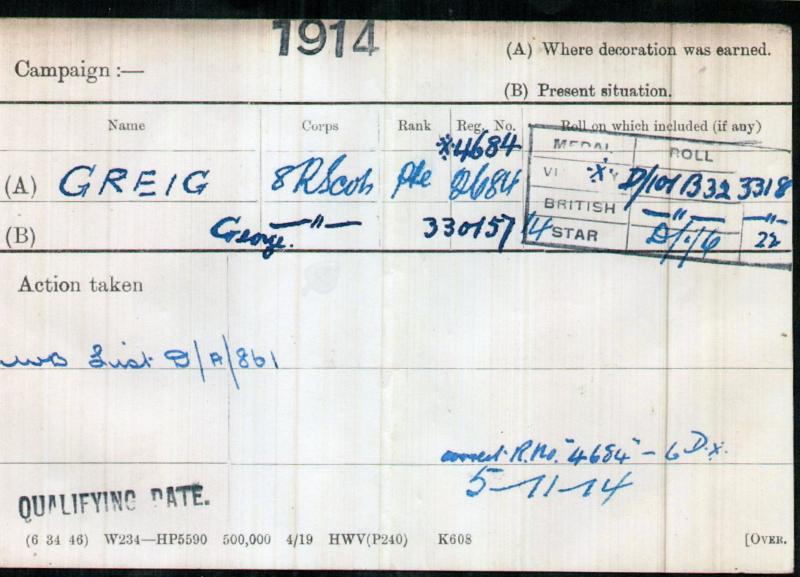 1914
Campaign :—
(A) Where decoration was earned.
(B) Present situation.
Name Corps Rank Reg. No. Roll on which included (if any)
*4684
MEDAL ROLL
(A) GREIG 8 R Scots Pte 2684
VICTORY * D/101 B32 3318
BRITISH — " — — " —
(B) George. — " — 330157
14 STAR D/1/6 22
Action taken
List D/A/861
correct R. No. "4684" – 6 D.x.
5-11-14
QUALIFYING DATE.
(6 34 46) W234—HP5590 500,000 4/19 HWV(P240) K608 [OVER.